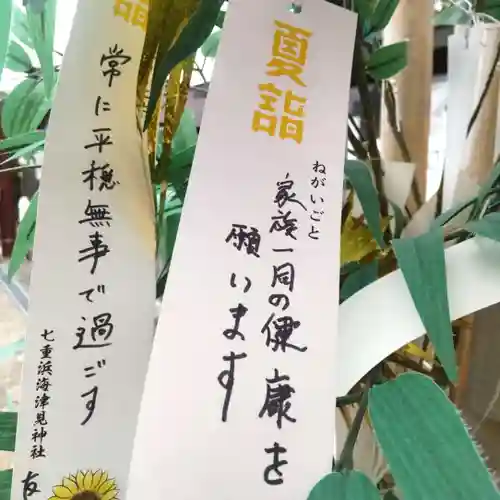 夏詣
ねがいごと
家族一同の健康を
願います
詣
常に平穏無事で過ごす
七重浜海津見神社